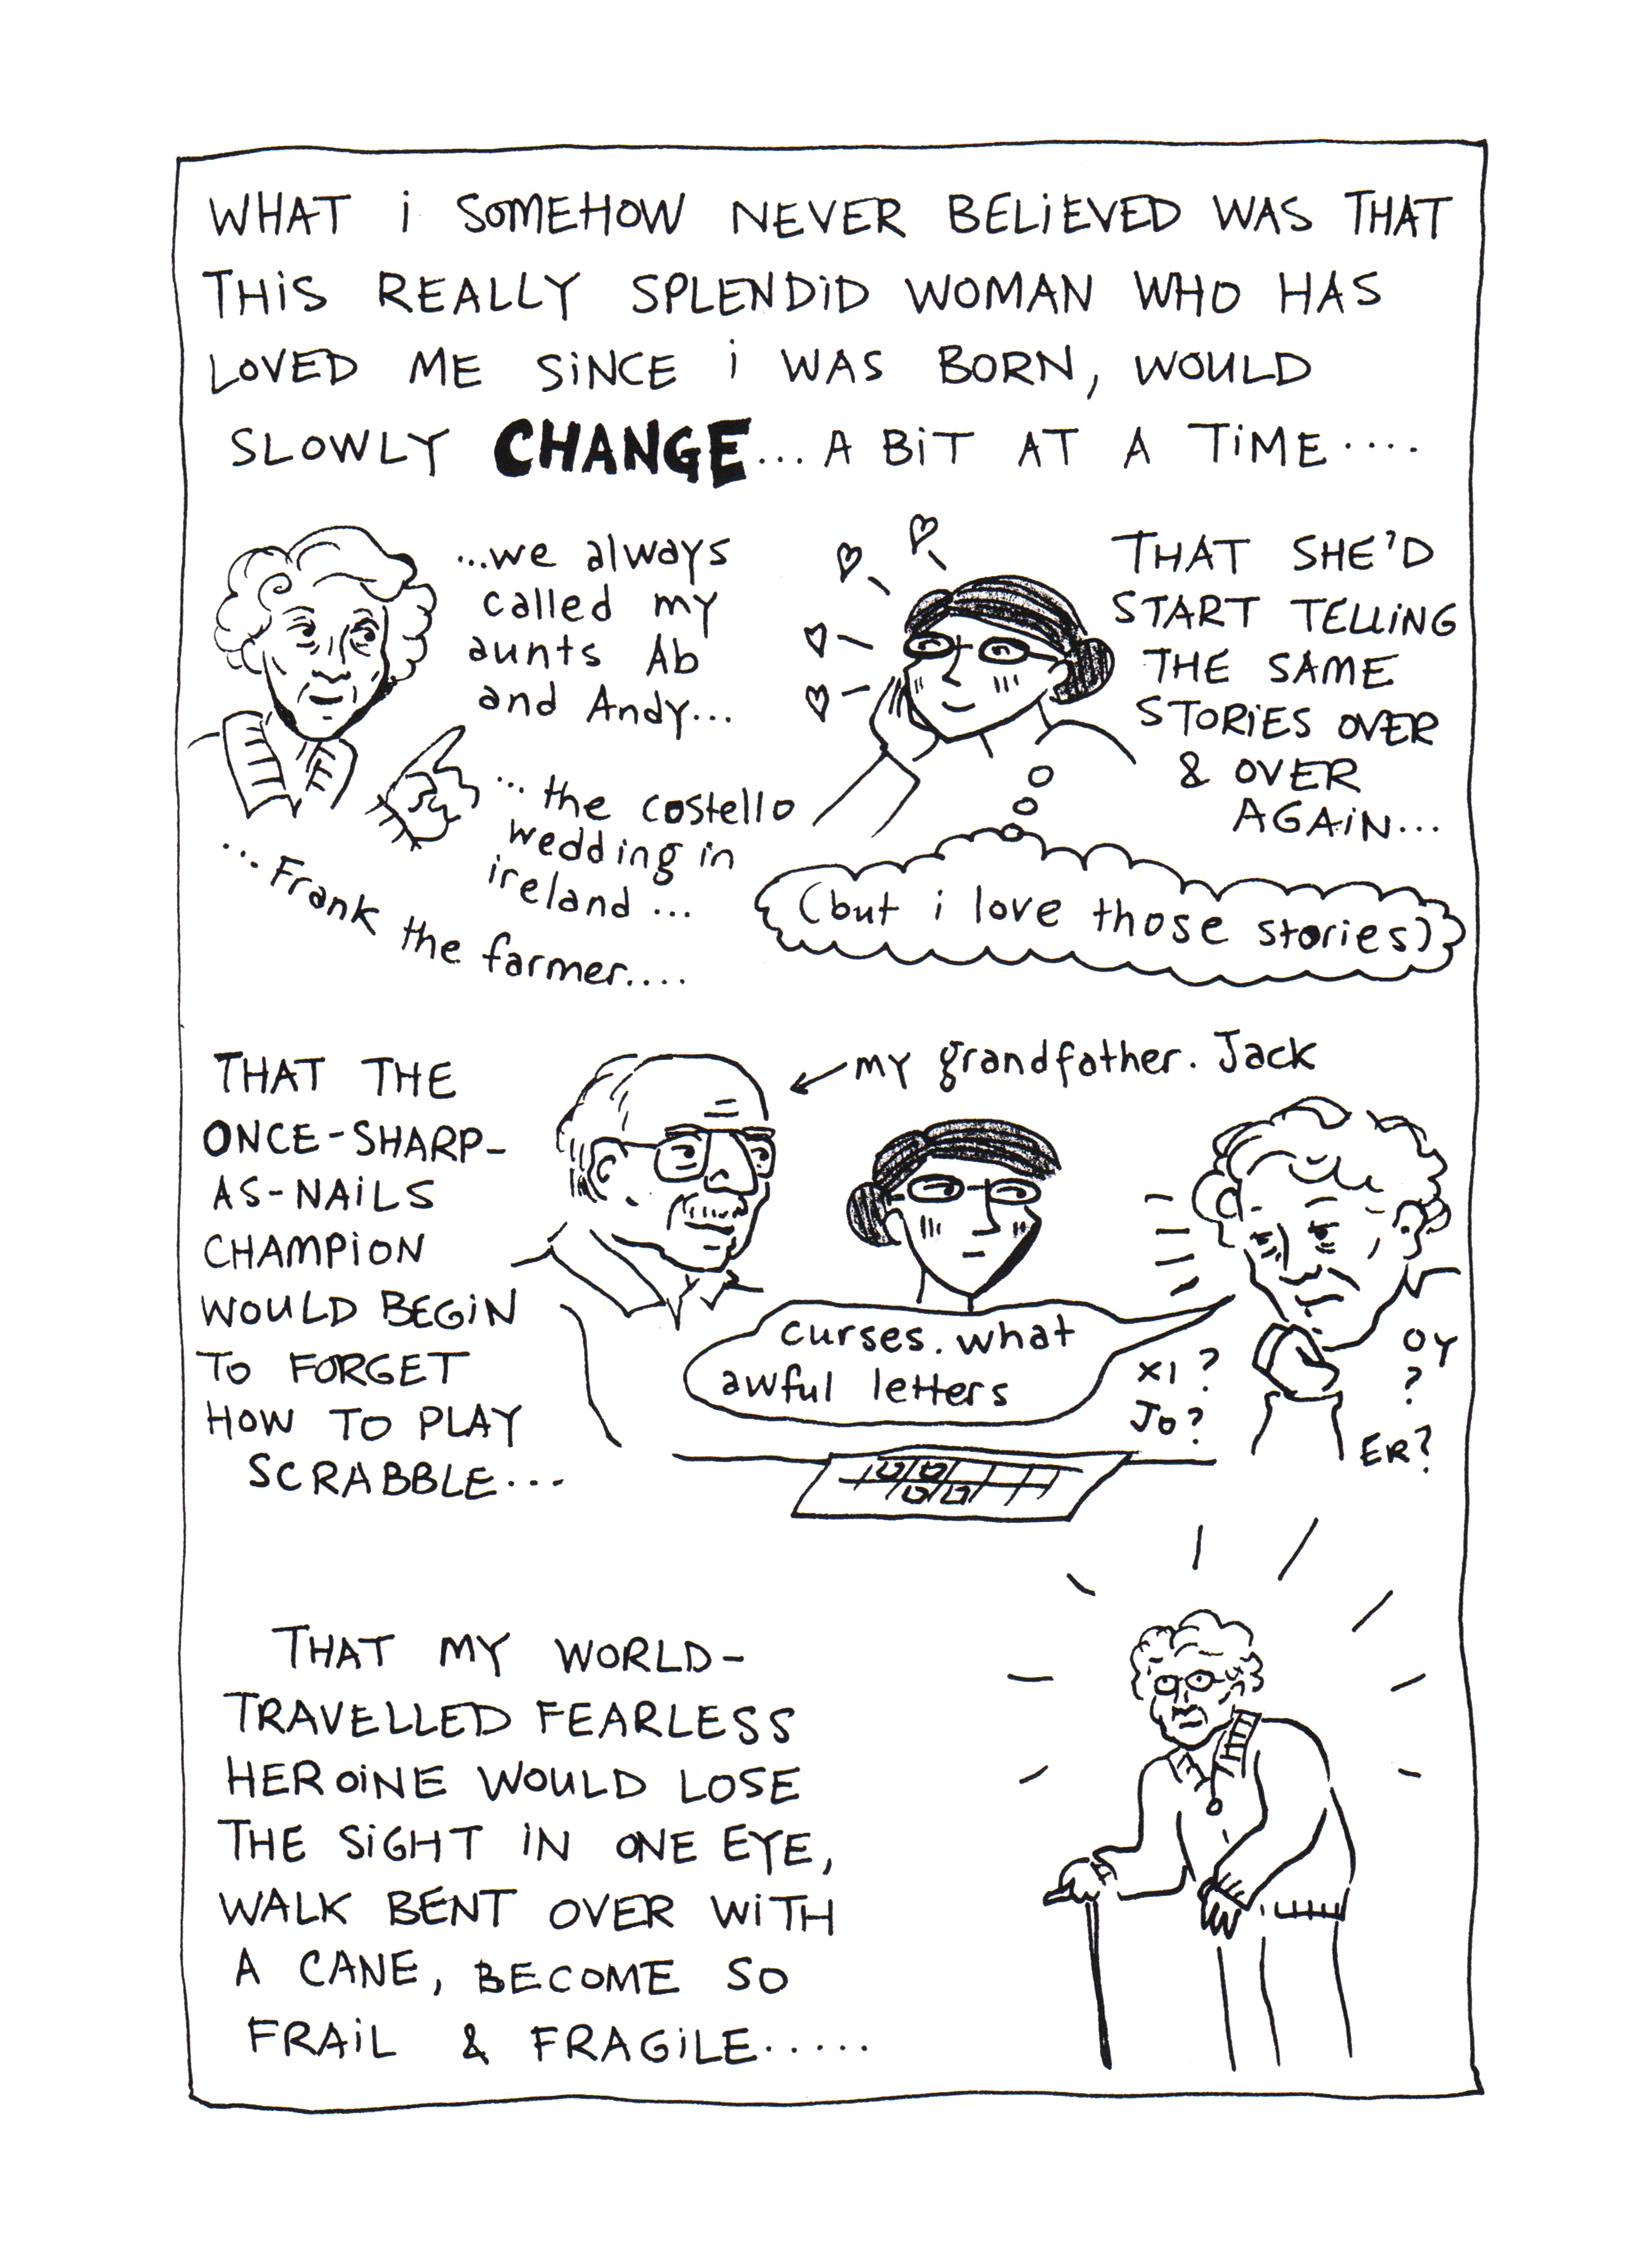 WHAT i SOMEHOW NEVER BELiEVED WAS THAT
THiS REALLY SPLENDiD WOMAN WHO HAS
LOVED ME SiNCE i WAS BORN, WOULD
SLOWLY CHANGE... A BiT AT A TiME....
...we always
called my
aunts Ab
and Andy...
... the costello
wedding in
ireland ...
...Frank the farmer....
THAT SHE'D
START TELLiNG
THE SAME
STORiES OVER
& OVER
AGAiN...
(but i love those stories)
THAT THE
ONCE-SHARP-
AS-NAiLS
CHAMPiON
WOULD BEGiN
TO FORGET
HOW TO PLAY
SCRABBLE...
my grandfather. Jack
curses. what
awful letters
XI ?
JO?
OY
?
ER?
THAT MY WORLD-
TRAVELLED FEARLESS
HEROiNE WOULD LOSE
THE SiGHT iN ONE EYE,
WALK BENT OVER WiTH
A CANE, BECOME SO
FRAiL & FRAGiLE.....